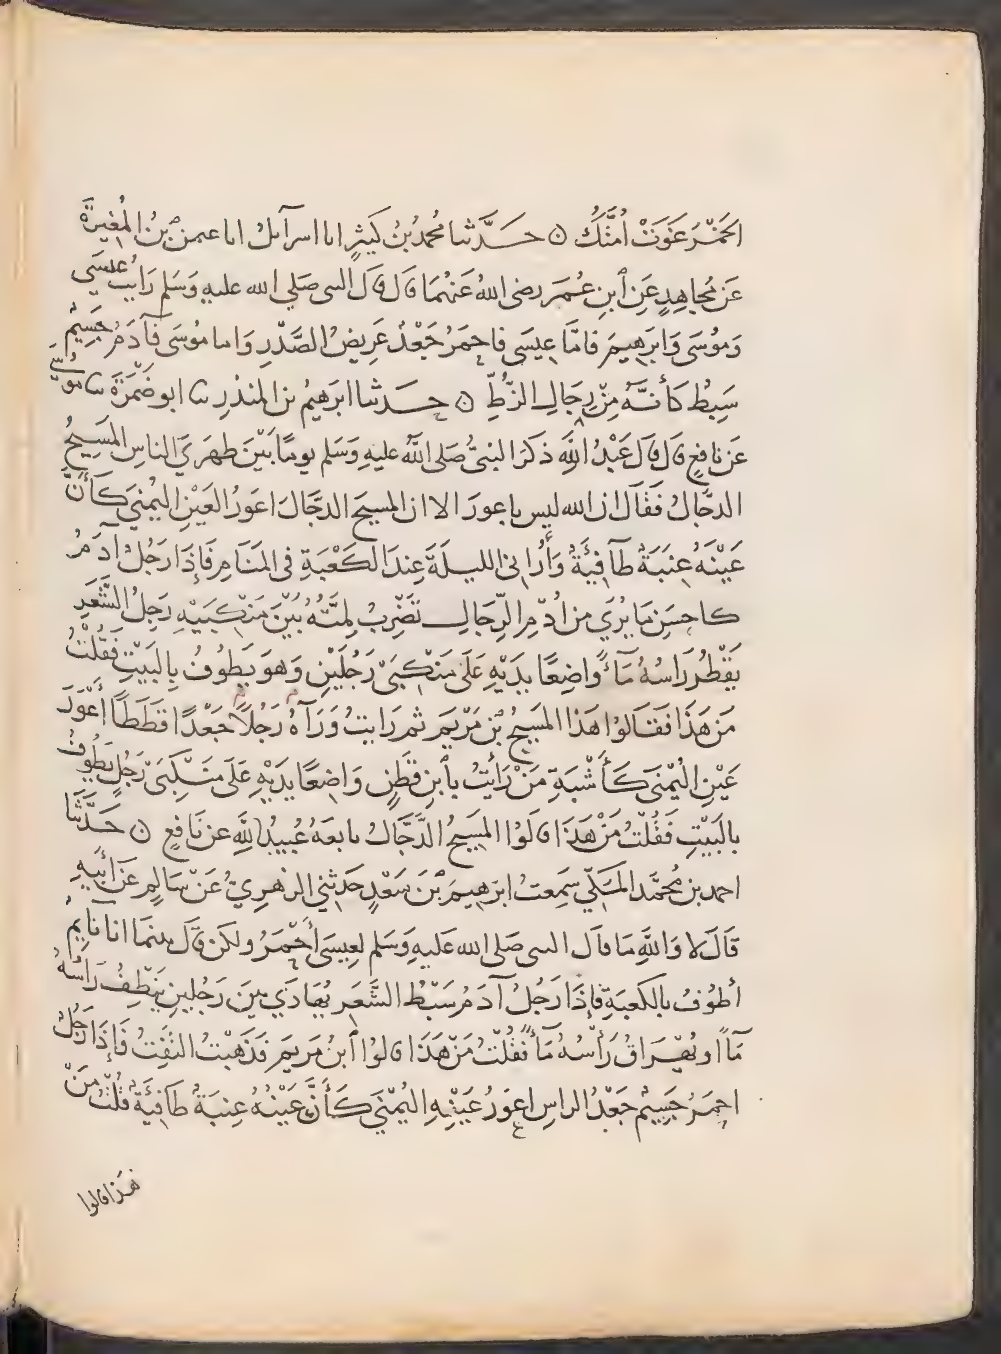 الخمر غَوَتْ أُمَّتُكَ ۞ حدَّثنا محمد بنُ كَثِيرٍ انا اسرآئيل انا عثمن بن المُغِيرَة
عَن مُجَاهِدٍ عَنِ ابنِ عُمَرَ رضى اللهُ عَنْهُمَا قال قال النبى صَلى الله عليهِ وَسَلم رَايتُ عِيسَى
وَمُوسَى وَابرَهِيمَ فامَّا عِيسَى فاحمَرُ جَعْدٌ عَرِيضُ الصَّدْرِ وَاما مُوسَى فَآدَمُ جَسِيمٌ
سَبِطٌ كَأنَّهُ مِنْ رِجَالِ الزُّطِّ ۞ حدثنا ابرَهِيمُ بن المنذرِ نا ابو ضَمْرَةَ نا مُوسَى
عَن نافعٍ قال قال عَبْدُ اللَّهِ ذكَرَ النبىُّ صَلى اللَّهُ عليهِ وَسَلم يومًا بَيْنَ ظهرَيِ الناسِ المَسِيحُ
الدجَّالُ فَقَالَ ان الله ليس باعورَ الا ان المسِيحَ الدجَّالَ اعوَرُ العَيْنِ اليُمْنَى كَأَنَّ
عَيْنَهُ عِنَبَةٌ طَآفِيَةٌ وَأُرَانِى الليلَةَ عِندَ الكَعْبَةِ فى المَنَامِ فَإِذَا رَجُلٌ آدَمُ
كاحسَنِ مَا يُرَي من اُدْمِ الرِّجَالِ تَضْرِبُ لِمَّتُهُ بَيْنَ مَنْكِبَيْهِ رَجِلُ الشَّعَرِ
يَقْطُرُ رَاسُهُ مَآءً وَاضِعًا يدَيْهِ عَلَى مَنْكِبَيْ رَجُلَيْنِ وَهوَ يَطُوفُ بِالبَيْتِ فَقُلْتُ
مَن هَذَا فَقَالوُا هَذا المَسِيحُ بْن مَرْيَم ثم رَايتُ وَرَآهُ رَجُلاً جَعْدًا قَطَطًا أَعْوَرَ
عَيْنِ اليُمْنَى كَأَشْبَهِ مَنْ رَأَيْتُ بِابنِ قَطَنٍ وَاضِعًا يدَيْهِ عَلَى مَنْكِبَيْ رَجُلٍ يَطُوفُ
بالبَيْتِ فَقُلْتُ مَنْ هَذَا قالوُا المَسِيحُ الدَّجَّالُ تابعَهُ عُبَيدُ اللَّهِ عن نافعٍ ۞ حَدَّثَنا
احمد بن مُحمَّد المَكِّي سَمِعتُ ابرَهِيمَ بْنَ سَعْدٍ حدثني الزهريُّ عَنْ سَالِمٍ عَن أَبِيهِ
قَالَ لا وَاللَّهِ مَا قال النبى صَلى الله عَليهِ وَسَلم لِعِيسَى أحْمَرُ ولكن قالَ بينما انا نايمٌ
أطوفُ بالكعبَةِ فإذَا رَجُلٌ آدَمُ سَبْطُ الشَّعَرِ يُهَادَي بينَ رَجُلينِ يَنْطِفُ رَاسُهُ
مَآءً او يُهْرَاقُ رَأْسُهُ مَآءً فَقُلْتُ مَنْ هَذَا قالوُا ابنُ مَريَم فَذَهبْتُ التَفِتُ فَإِذَا رَجُلٌ
احمَرُ جَسِيمٌ جَعْدُ الراسِ اعوَرُ عَيْنِهِ اليُمْنَى كَأَنَّ عَيْنَهُ عِنبَةٌ طَافِيَةٌ قُلْتُ مَنْ
هَذا قالوا